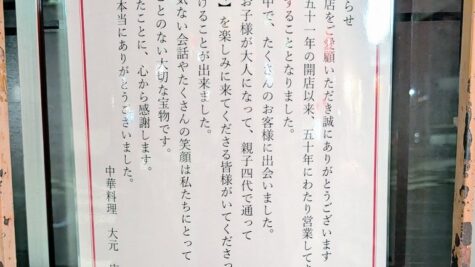 らせ
店をご愛顧いただき誠にありがとうございます
五十一年の開店以来、五十年にわたり営業して
することとなりました。
中で、たくさんのお客様に出会いました。
お子様が大人になって、親子四代で通って
】を楽しみに来てくださる皆様がいてくださっ
けることが出来ました。
気ない会話やたくさんの笑顔は私たちにとって
ことのない大切な宝物です。
たことに、心から感謝します。
本当にありがとうございました。
中華料理 大元